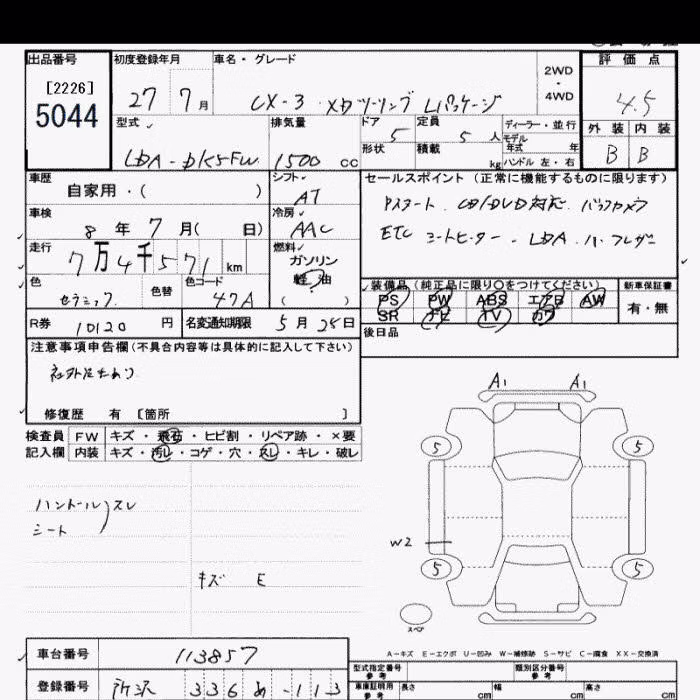 出品番号 初度登録年月 車名・グレード 評価点
[2226]
5044
27 7月 CX-3 XDツーリング Lパッケージ 2WD・4WD 4.5
型式 排気量 ドア 定員 ディーラー・並行 外装 内装
LDA-DK5FW 1500cc 5 5人 モデル年式 年 B B
形状 積載 kg ハンドル 左・右
車歴 シフト セールスポイント (正常に機能するものに限ります)
自家用・( ) AT Pスタート CD/DVD対応 バックカメラ
車検 冷房 ETC シートヒーター LDA
8年 7月( 日) AAC
走行 燃料
7万4千571km ガソリン
軽油
( )
色 色替 色コード 装備品 (純正品に限り○をつけてください) 新車保証書
セラミック 47A PS PW ABS エアB AW 有・無
SR ナビ TV カワ
R券 10120円 名変通知期限 5月25日 後日品
注意事項申告欄(不具合内容等は具体的に記入して下さい)
社外足あり
修復歴 有 [箇所 ]
検査員 FW キズ・飛石・ヒビ割・リペア跡・×要
記入欄 内装 キズ・汚レ・コゲ・穴・スレ・キレ・破レ
A1 A1
5 5
ハンドル スレ
シート
W2
5 5
キズ E
スペア
A-キズ E-エクボ U-凹み W-補修跡 S-サビ C-腐食 XX-交換済
車台番号 113857 型式指定番号 参考 類別区分番号 参考
登録番号 所沢 336 め-113 車庫証明用 参考 長さ cm 幅 cm 高さ cm